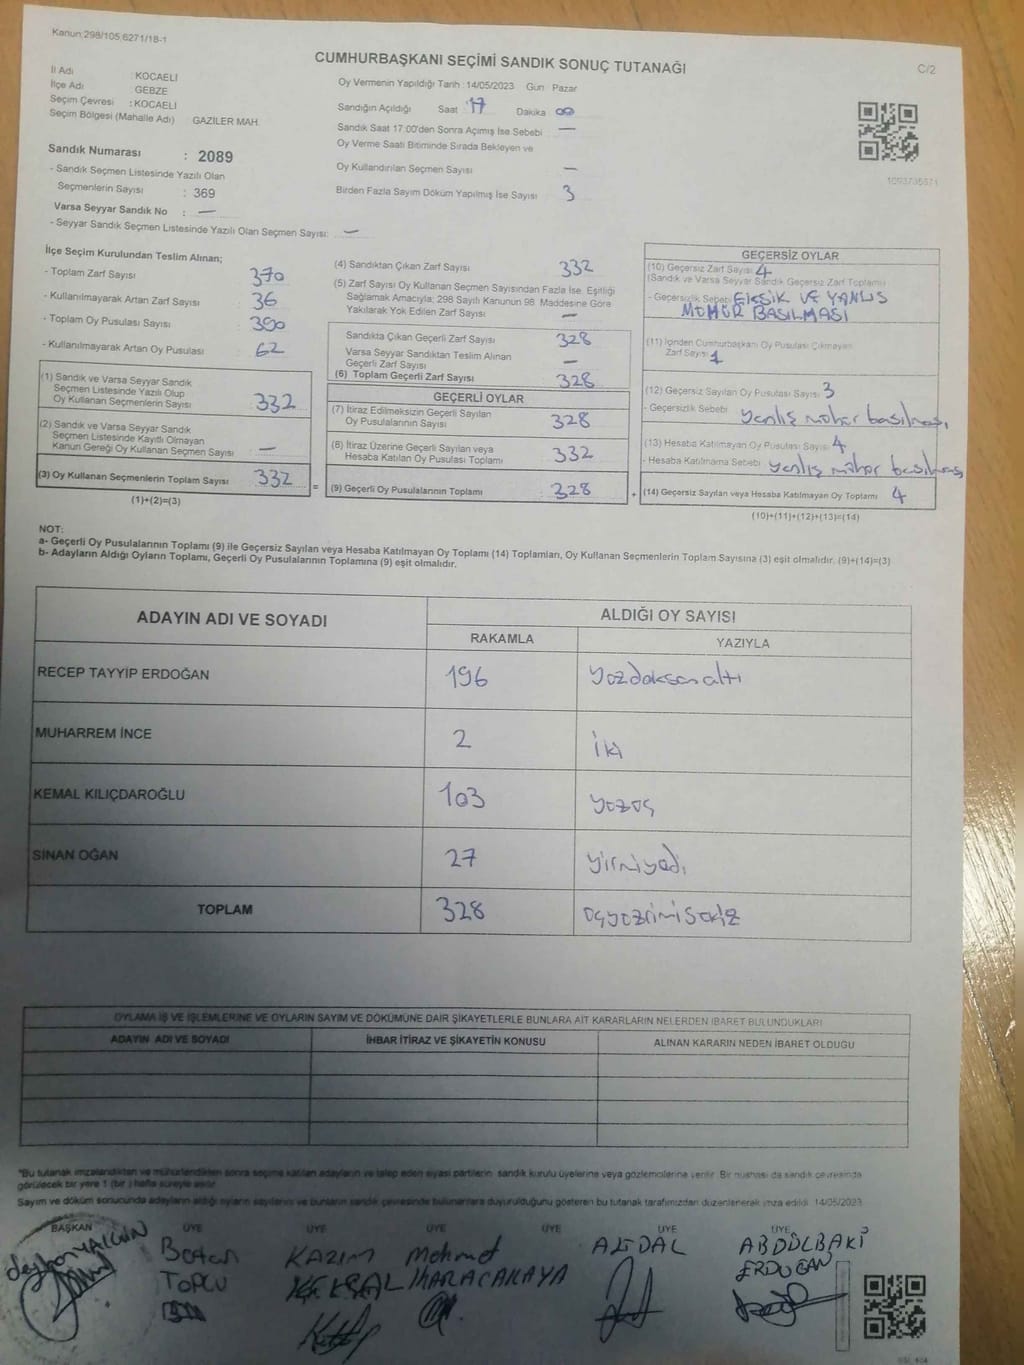 Kanun:298/105,6271/18-1
CUMHURBAŞKANI SEÇİMİ SANDIK SONUÇ TUTANAĞI
C/2
İl Adı : KOCAELİ
İlçe Adı GEBZE
Seçim Çevresi : KOCAELİ
Seçim Bölgesi (Mahalle Adı) GAZİLER MAH.
Sandık Numarası : 2089
- Sandık Seçmen Listesinde Yazılı Olan
Seçmenlerin Sayısı : 369
Varsa Seyyar Sandık No : —
- Seyyar Sandık Seçmen Listesinde Yazılı Olan Seçmen Sayısı: —
Oy Vermenin Yapıldığı Tarih : 14/05/2023 Gün Pazar
Sandığın Açıldığı Saat 17 Dakika 00
Sandık Saat 17:00'den Sonra Açılmış İse Sebebi —
Oy Verme Saati Bitiminde Sırada Bekleyen ve
Oy Kullandırılan Seçmen Sayısı —
Birden Fazla Sayım Döküm Yapılmış İse Sayısı 3
1093735571
İlçe Seçim Kurulundan Teslim Alınan;
- Toplam Zarf Sayısı 370
- Kullanılmayarak Artan Zarf Sayısı 36
- Toplam Oy Pusulası Sayısı 390
- Kullanılmayarak Artan Oy Pusulası 62
(1) Sandık ve Varsa Seyyar Sandık
Seçmen Listesinde Yazılı Olup
Oy Kullanan Seçmenlerin Sayısı 332
(2) Sandık ve Varsa Seyyar Sandık
Seçmen Listesinde Kayıtlı Olmayan
Kanun Gereği Oy Kullanan Seçmen Sayısı —
(3) Oy Kullanan Seçmenlerin Toplam Sayısı 332 =
(1)+(2)=(3)
(4) Sandıktan Çıkan Zarf Sayısı 332
(5) Zarf Sayısı Oy Kullanan Seçmen Sayısından Fazla İse, Eşitliği
Sağlamak Amacıyla; 298 Sayılı Kanunun 98. Maddesine Göre
Yakılarak Yok Edilen Zarf Sayısı —
Sandıkta Çıkan Geçerli Zarf Sayısı 328
Varsa Seyyar Sandıktan Teslim Alınan
Geçerli Zarf Sayısı —
(6) Toplam Geçerli Zarf Sayısı 328
GEÇERLİ OYLAR
(7) İtiraz Edilmeksizin Geçerli Sayılan
Oy Pusulalarının Sayısı 328
(8) İtiraz Üzerine Geçerli Sayılan veya
Hesaba Katılan Oy Pusulası Toplamı 332
(9) Geçerli Oy Pusulalarının Toplamı 328 +
GEÇERSİZ OYLAR
(10) Geçersiz Zarf Sayısı 4
(Sandık ve Varsa Seyyar Sandık Geçersiz Zarf Toplamı)
- Geçersizlik Sebebi EKSİK VE YANLIS
MÜHÜR BASILMASI
(11) İçinden Cumhurbaşkanı Oy Pusulası Çıkmayan
Zarf Sayısı 1
(12) Geçersiz Sayılan Oy Pusulası Sayısı 3
- Geçersizlik Sebebi yanlış mühür basılması
(13) Hesaba Katılmayan Oy Pusulası Sayısı 4
- Hesaba Katılmama Sebebi yanlış mühür basılması
(14) Geçersiz Sayılan veya Hesaba Katılmayan Oy Toplamı 4
(10)+(11)+(12)+(13)=(14)
NOT:
a- Geçerli Oy Pusulalarının Toplamı (9) ile Geçersiz Sayılan veya Hesaba Katılmayan Oy Toplamı (14) Toplamları, Oy Kullanan Seçmenlerin Toplam Sayısına (3) eşit olmalıdır. (9)+(14)=(3)
b- Adayların Aldığı Oyların Toplamı, Geçerli Oy Pusulalarının Toplamına (9) eşit olmalıdır.
ADAYIN ADI VE SOYADI ALDIĞI OY SAYISI
RAKAMLA YAZIYLA
RECEP TAYYİP ERDOĞAN 196 yüzdoksanaltı
MUHARREM İNCE 2 iki
KEMAL KILIÇDAROĞLU 103 yüzüç
SİNAN OĞAN 27 yirmiyedi
TOPLAM 328 üçyüzrimisekiz
OYLAMA İŞ VE İŞLEMLERİNE VE OYLARIN SAYIM VE DÖKÜMÜNE DAİR ŞİKAYETLERLE BUNLARA AİT KARARLARIN NELERDEN İBARET BULUNDUKLARI
ADAYIN ADI VE SOYADI İHBAR İTİRAZ VE ŞİKAYETİN KONUSU ALINAN KARARIN NEDEN İBARET OLDUĞU
*Bu tutanak imzalandıktan ve mühürlendikten sonra seçime katılan adayların ve talep eden siyasi partilerin sandık kurulu üyelerine veya gözlemcilerine verilir. Bir nüshası da sandık çevresinde
görülecek bir yere 1 (bir) hafta süreyle asılır.
Sayım ve döküm sonucunda adayların aldığı oyların sayılarını ve bunların sandık çevresinde bulunanlara duyurulduğunu gösteren bu tutanak tarafımızdan düzenlenerek imza edildi. 14/05/2023
BAŞKAN ÜYE ÜYE ÜYE ÜYE ÜYE ÜYE
YALÇIN
KAZIM
Mehmet KARACAKAYA
ALİ DAL
ABDÜLBAKİ
ERDOĞAN
TOPÇU